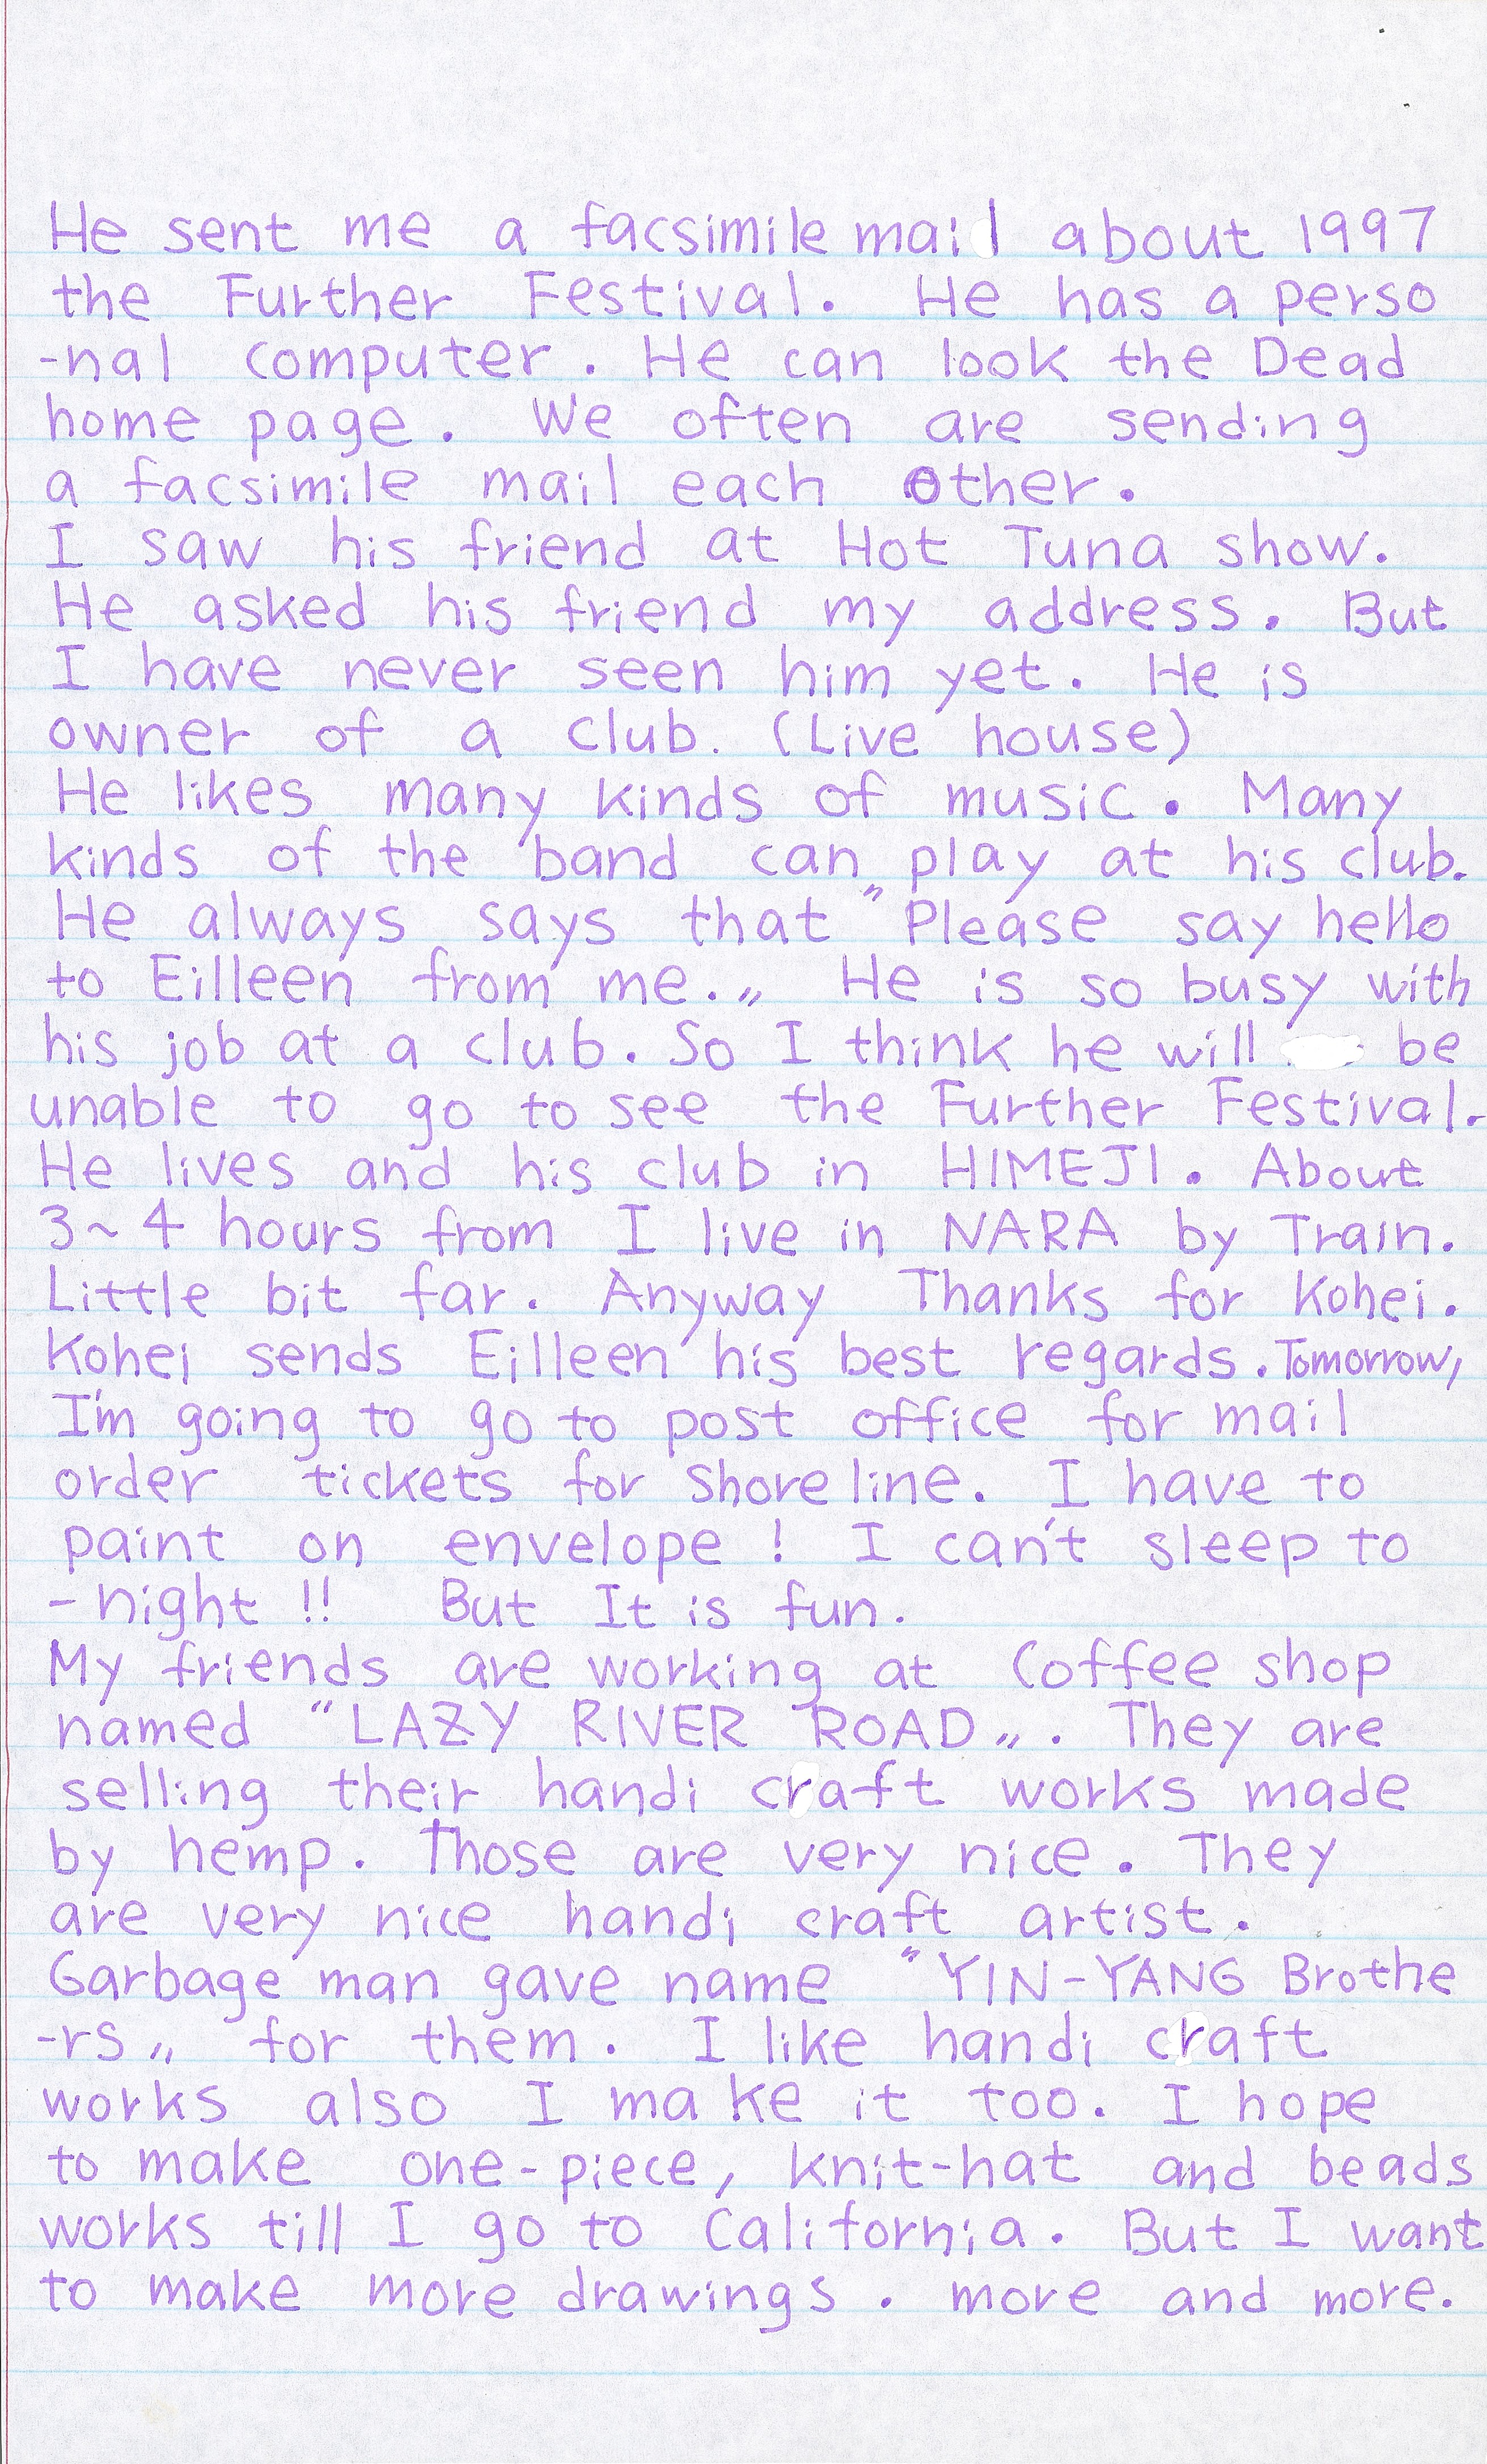 He sent me a facsimile mail about 1997
the Further Festival. He has a perso
-nal computer. He can look the Dead
home page. We often are sending
a facsimile mail each other.
I saw his friend at Hot Tuna show.
He asked his friend my address. But
I have never seen him yet. He is
owner of a club. (Live house)
He likes many kinds of music. Many
kinds of the band can play at his club.
He always says that "Please say hello
to Eilleen from me.„ He is so busy with
his job at a club. So I think he will be
unable to go to see the Further Festival.
He lives and his club in HIMEJI. About
3~4 hours from I live in NARA by Train.
Little bit far. Anyway Thanks for Kohei.
Kohei sends Eilleen his best regards. Tomorrow,
I'm going to go to post office for mail
order tickets for Shoreline. I have to
paint on envelope! I can't sleep to
-night!! But It is fun.
My friends are working at Coffee shop
named "LAZY RIVER ROAD„. They are
selling their handi craft works made
by hemp. Those are very nice. They
are very nice handi craft artist.
Garbage man gave name "YIN-YANG Brothe
-rs„ for them. I like handi craft
works also I make it too. I hope
to make one-piece, knit-hat and beads
works till I go to California. But I want
to make more drawings. more and more.